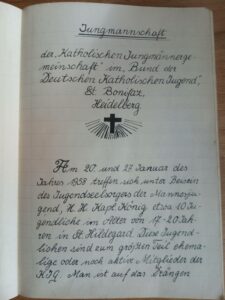 Jungmannschaft
der „Katholischen Jungmännerge-
meinschaft" im „Bund der
Deutschen Katholischen Jugend",
St. Bonifaz,
Heidelberg
Am 20. und 27. Januar des
Jahres 1958 treffen sich unter Beisein
des Jugendseelsorgers der Mannesju-
gend, H. H. Kapl. König etwa 10 Ju-
gendliche im Alter von 17-20 Jah-
ren in St. Hildegard. Diese Jugend-
lichen sind zum größten Teil ehema-
lige oder noch aktive Mitglieder der
KJG. Man ist auf das Drängen